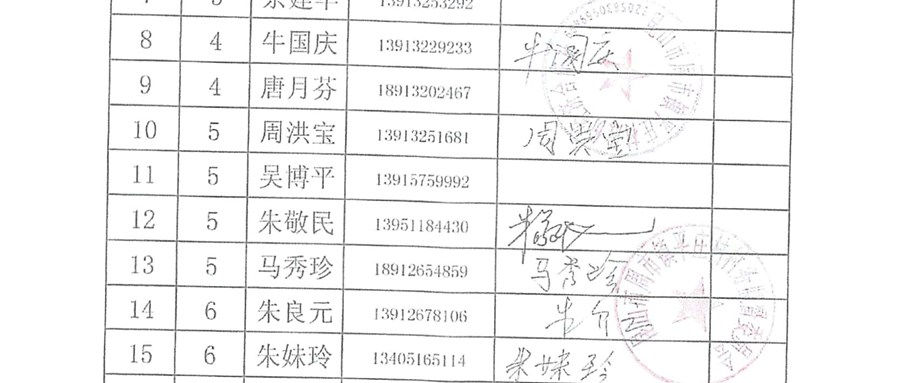 13913253292
8 4 牛国庆 13913229233 牛国庆
9 4 唐月芬 18913202467
10 5 周洪宝 13913251681 周洪宝
11 5 吴博平 13915759992
12 5 朱敬民 13951184430
13 5 马秀珍 18912654859 马秀珍
14 6 朱良元 13912678106
15 6 朱妹玲 13405165114 朱妹玲